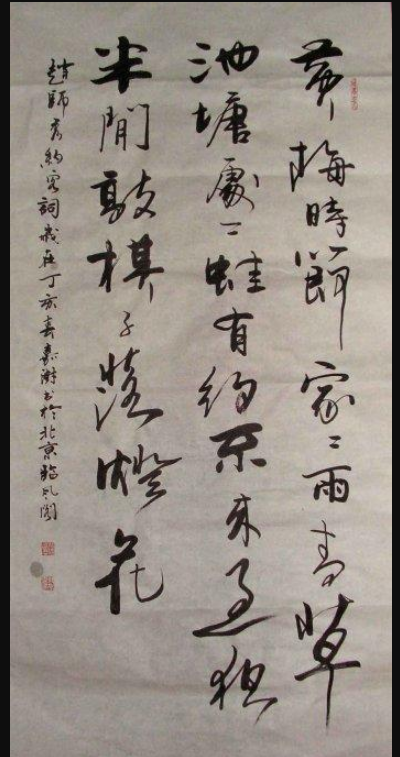 黄梅時節家〻雨青草
池塘處〻蛙有約不来過夜
半閒敲棋子落燈花
趙師秀約客詞歲在丁亥春書於北京臨風閣